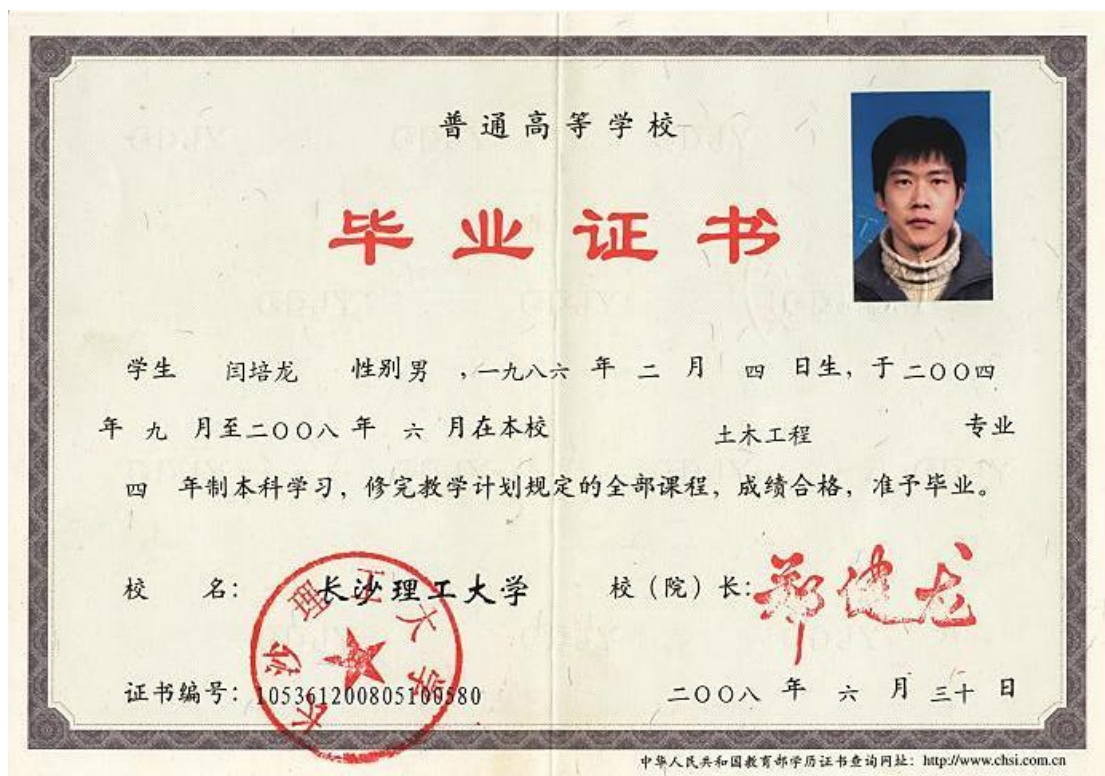 普通高等学校
毕业证书
学生 闫培龙 性别 男 ,一九八六 年 二 月 四 日生，于 二〇〇四
年 九 月至 二〇〇八 年 六 月在本校 土木工程 专业
四 年制本科学习，修完教学计划规定的全部课程，成绩合格，准予毕业。
校 名： 长沙理工大学 校（院）长： 郑健龙
长沙理工大学
证书编号：105361200805100580 二〇〇八 年 六 月 三十 日
中华人民共和国教育部学历证书查询网址：http://www.chsi.com.cn